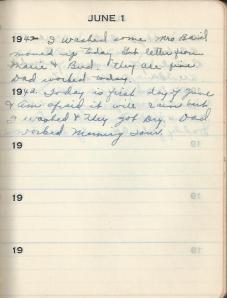 JUNE 1
1942 I washed some. Mrs Bavil
moved up today. Got letter from
Marie & Bud. they are fine
Dad worked today.
1942. Today is first day of June
& am afraid it will rain but
I washed & they got dry. Dad
worked Morning Tour.
19
19
19